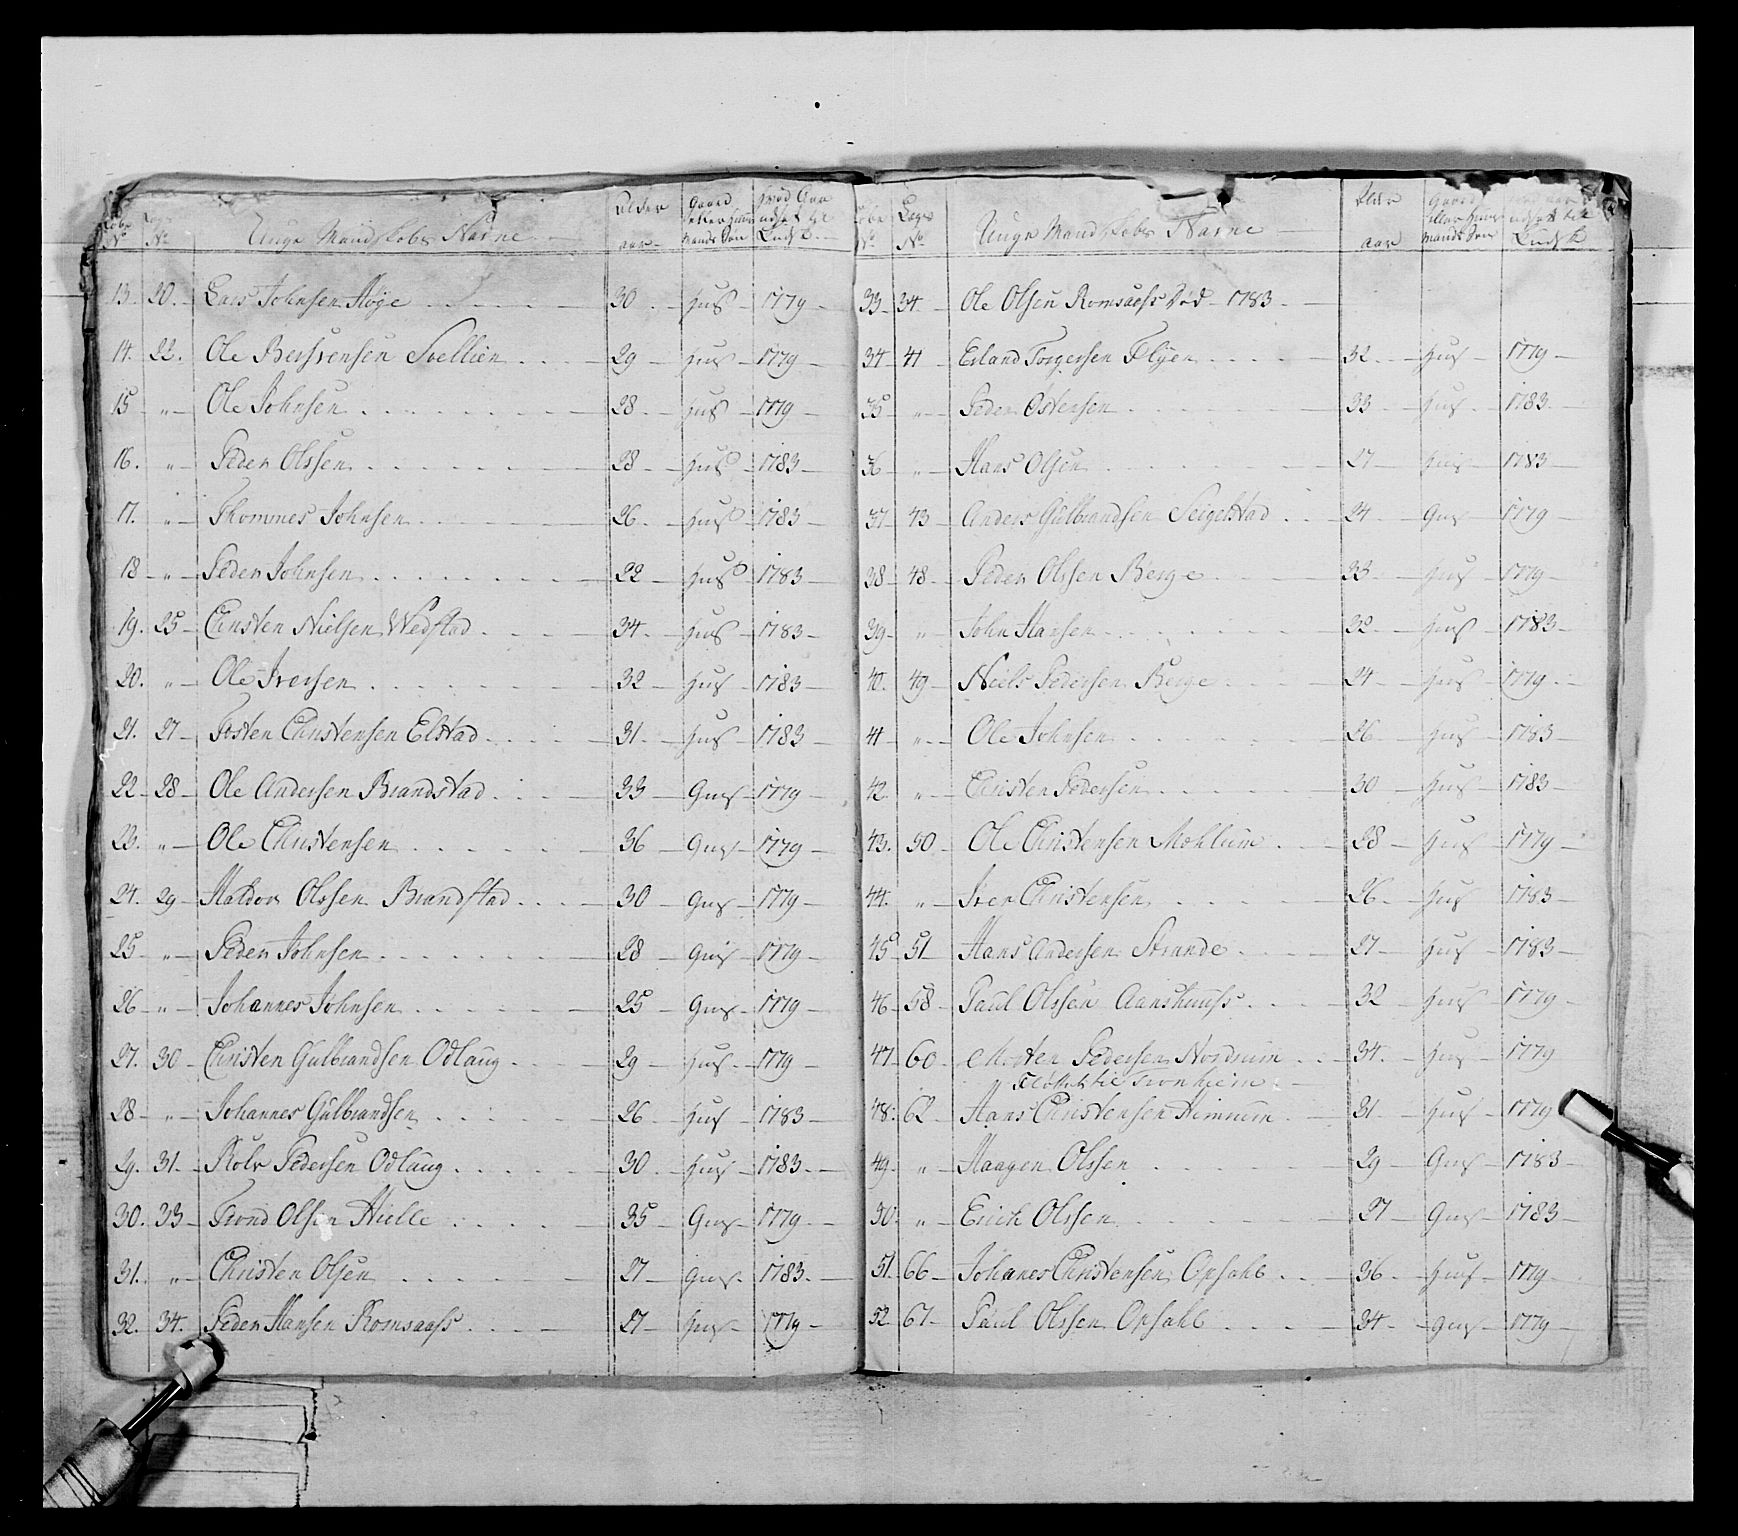 Løbe No Lægs No Unge Mandskobs Nafne Alder aar Gaard eller Huus Mands Søn Hvad Aar udsat til Landf:
13. 20. Lars Johnsen Høye 30 Hus 1779
14. 22. Ole Berstensen Svellien 29 Hus 1779
15 " Ole Johnsen 28 Hus 1779
16. " Peder Olssen 28 Hus 1783
17. " Thommes Johnsen 26. Hus 1783
18 " Peder Johnsen 22 Hus 1783
19. 25 Christen Nielsen Wedstad 34. Hus 1783
20. " Ole Iversen 32 Hus 1783
21. 27 Tosten Christensen Elstad 31 Hus 1783
22 28 Ole Andersen Brandstad 33 Gms 1779
23. " Ole Christensen 36 Gms 1779
24. 29 Haldor Olssen Brandstad 30 Gms 1779
25 " Peder Johnsen 28 Gms 1779
26 " Johannes Johnsen 25 Gms 1779
27. 30 Christen Gulbrandsen Odlaug 29 Hus 1779
28 " Johannes Gulbrandsen 26 Hus 1783
29. 31 Rolv Pedersen Odlaug 30 Hus 1783
30. 33 Trond Olsen Hielle 35 Gms 1779
31. " Christen Olsen 27 Gms 1783
32. 34. Peder Hansen Romsaass 27 Hus 1779
Løbe No Lægs No Unge Mandskobs Nafne Alder aar Gaard eller Huus Mands Søn Hvad aar udsatt til Landf:
33 34 Ole Olsen Romsaass Død 1783
34 41 Erland Torgersen Flyen 32 Hus 1779
35 " Peder Østensen 33 Hus 1783
36 " Hans Olsen 27 Hus 1783
37 43 Anders Gulbrandsen Seigelstad 24 Gms 1779
38 48 Peder Olssen Berge 33 Hus 1779
39 " John Hansen 32 Hus 1783
40. 49 Niels Pedersen Berge 24 Hus 1779
41 " Ole Johnsen 26 Hus 1783
42 " Christen Pedersen 30 Hus 1783
43. 50 Ole Christensen Mohlum 28 Hus 1779
44. " Iver Christensen 26 Hus 1783
45 51 Hans Andersen Strande 27 Hus 1783
46 58 Paul Olssen Aanshuuss 32 Hus 1779
47 60 Morten Pedersen Nordrum 34. Hus 1779
" Fløtt til Tronhiem
48. 62 Hans Christensen Himrum 31 Hus 1779
49. " Haagen Olssen 29 Gms 1783
50 " Erich Olssen 27 Gms 1783
51. 66 Johanes Christensen Opsahl 36 Hus 1779
52 67 Paul Olssen Opsahl 34 Gms 1779